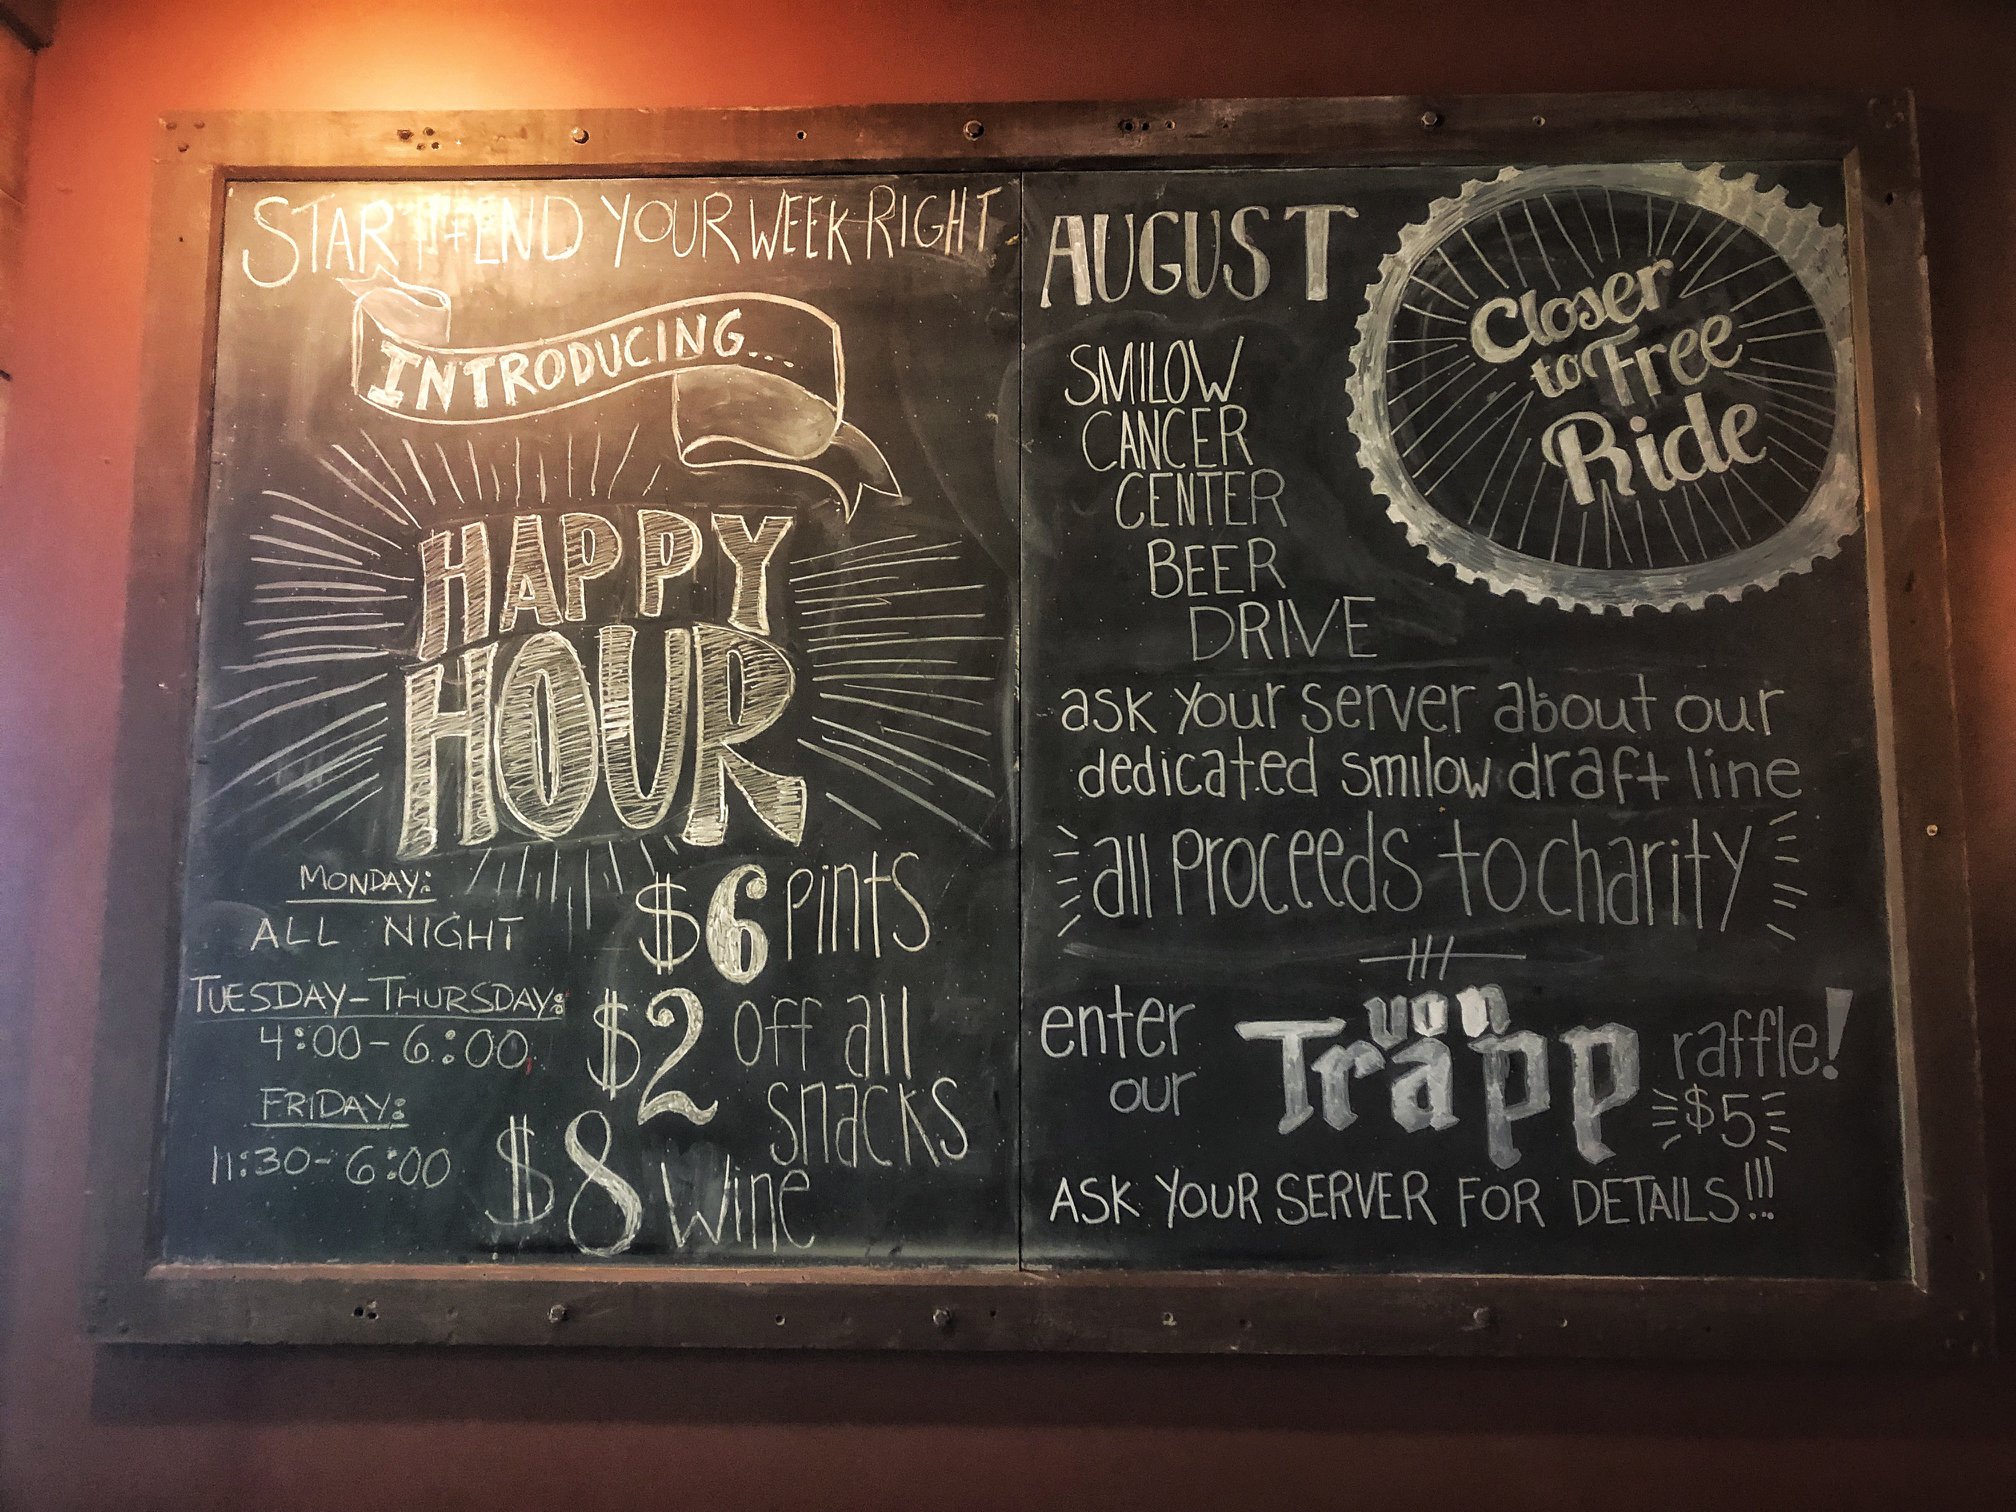 START + END YOUR WEEK RIGHT
INTRODUCING...
HAPPY
HOUR
MONDAY:
ALL NIGHT
TUESDAY-THURSDAY:
4:00-6:00
FRIDAY:
11:30-6:00
$6 pints
$2 off all
snacks
$8 wine
AUGUST
SMILOW
CANCER
CENTER
BEER
DRIVE
Closer
to Free
Ride
ask your server about our
dedicated smilow draft line
all proceeds to charity
enter
our
von
Trapp
raffle!
$5
ASK YOUR SERVER FOR DETAILS!!!